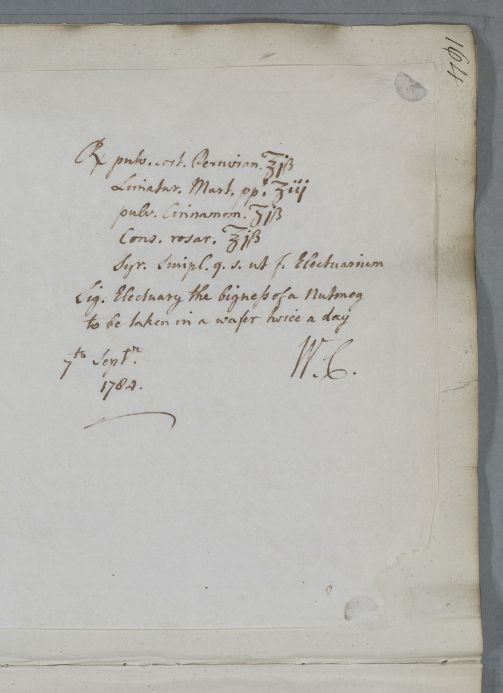 1614
℞ pulv. cort. Peruvian. ℥jß
Limatur. Mart. ppt. ʒiij
pulv. Cinnamm. ʒjß
Cons. rosar. ℥jß
Syr. Simpl. q. s. ut f. Electuarium
Sig. Electuary the bigness of a Nutmeg
to be taken in a wafer twice a day
7th Septr.
W: C.
1784.